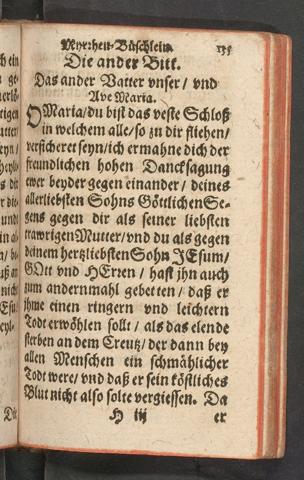 Myrrhen-Büschlein. 135
Die ander Bitt.
Das ander Vatter vnser / vnd
Ave Maria.
O Maria / du bist das veste Schloß
in welchem alle / so zu dir fliehen /
versicheret seyn / ich ermahne dich der
freundlichen hohen Dancksagung
ewer beyder gegen einander / deines
allerliebsten Sohns Göttlichen Se-
gens gegen dir als seiner liebsten
trawrigen Mutter / vnd du als gegen
deinem hertzliebsten Sohn JEsum /
GOtt vnd HErren / hast jhn auch
zum andernmahl gebetten / daß er
jhme einen ringern vnd leichtern
Todt erwöhlen sollt / als das elende
sterben an dem Creutz / der dann bey
allen Menschen ein schmählicher
Todt were / vnd daß er sein köstliches
Blut nicht also solte vergiessen. Da
H iij er
Die